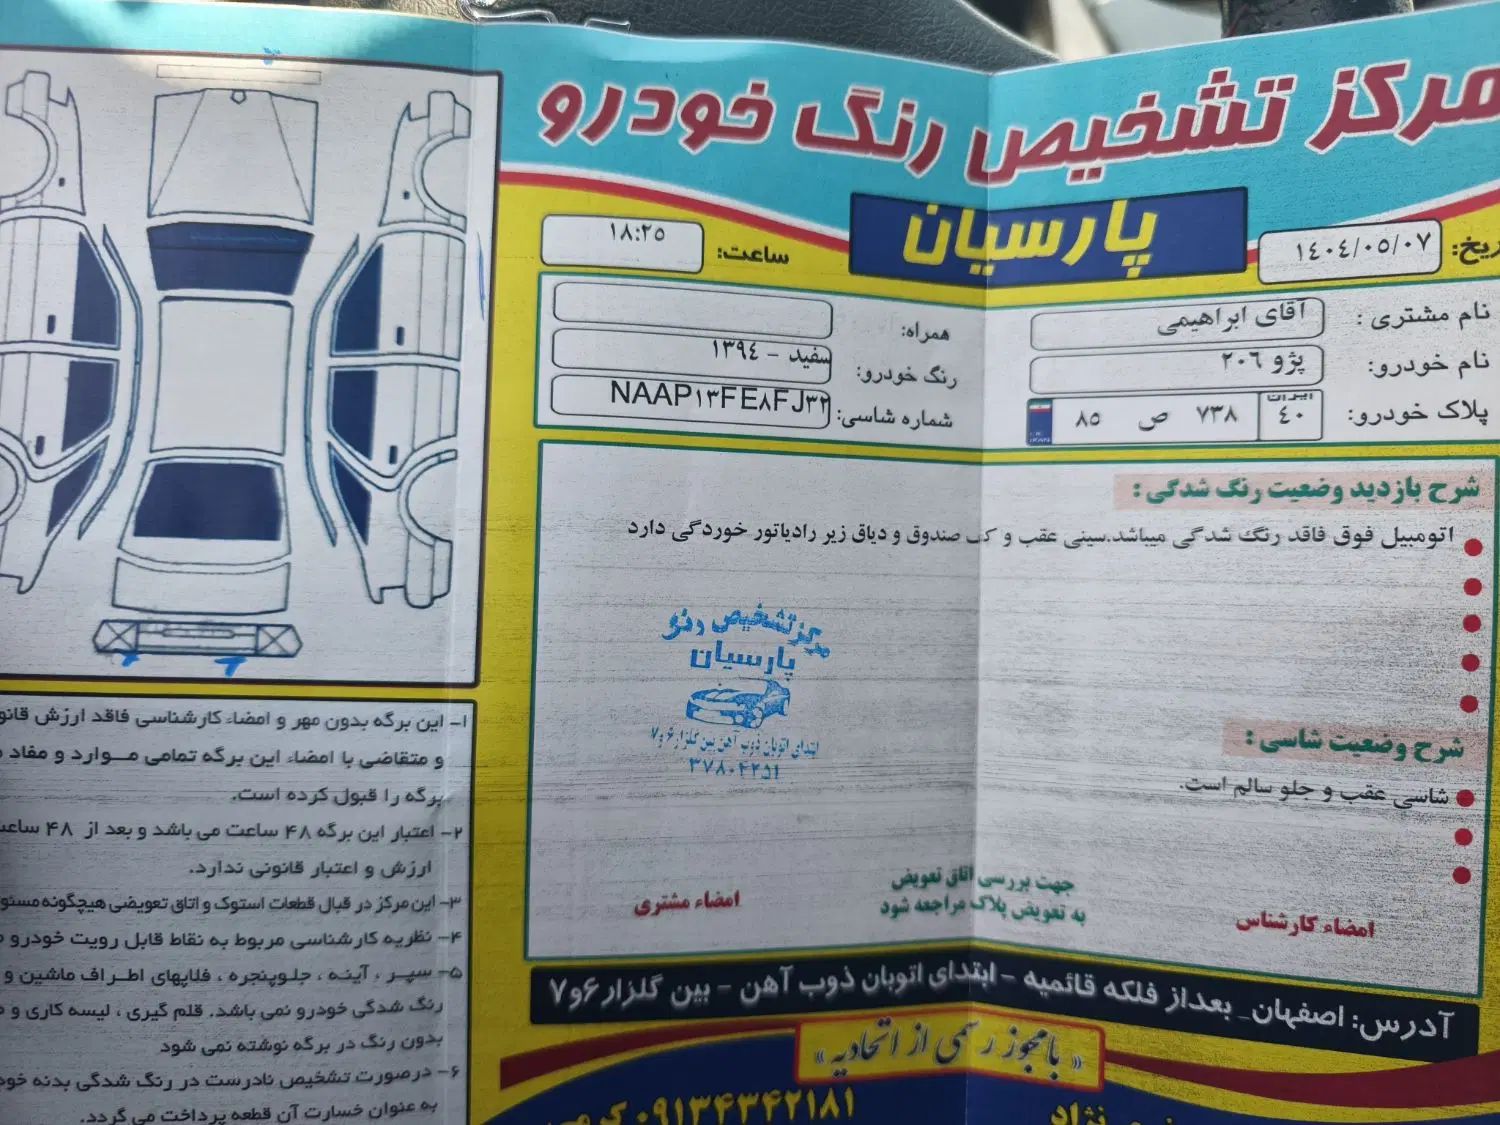 مرکز تشخیص رنگ خودرو
پارسیان
۱۴۰۴/۰۵/۰۷
ساعت: ۱۸:۲۵
نام مشتری : آقای ابراهیمی
همراه:
نام خودرو: پژو ۲۰۶
رنگ خودرو: سفید - ۱۳۹۴
پلاک خودرو: ایران ۴۰ ۷۳۸ ص ۸۵
شماره شاسی: NAAP۱۳FE۸FJ۳۲
شرح بازدید وضعیت رنگ شدگی :
اتومبیل فوق فاقد رنگ شدگی میباشد.سینی عقب و کف صندوق و دیاق زیر رادیاتور خوردگی دارد
مرکز تشخیص رنگ
پارسیان
ابتدای اتوبان ذوب آهن بین گلزار ۶ و ۷
۳۷۸۰۴۲۵۱
شرح وضعیت شاسی :
شاسی عقب و جلو سالم است.
جهت بررسی اتاق تعویض
به تعویض پلاک مراجعه شود
امضاء کارشناس
امضاء مشتری
آدرس: اصفهان_ بعداز فلکه قائمیه - ابتدای اتوبان ذوب آهن - بین گلزار ۶ و ۷
« با مجوز رسمی از اتحادیه »
۰۹۱۳۴۳۴۲۱۸۱
۱- این برگه بدون مهر و امضاء کارشناسی فاقد ارزش
و متقاضی با امضاء این برگه تمامی مــوارد و مفاد
برگه را قبول کرده است.
۲- اعتبار این برگه ۴۸ ساعت می باشد و بعد از ۴۸
ارزش و اعتبار قانونی ندارد.
۳- این مرکز در قبال قطعات استوک و اتاق تعویضی هیچگونه
۴- نظریه کارشناسی مربوط به نقاط قابل رویت خودرو
۵- سپر ، آینه ، جلوپنجره ، فلاپهای اطـراف ماشین و
رنگ شدگی خودرو نمی باشد. قلم گیری ، لیسه کاری و
بدون رنگ در برگه نوشته نمی شود
۶- درصورت تشخیص نادرست در رنگ شدگی بدنه
به عنوان خسارت آن قطعه پرداخت می گردد.